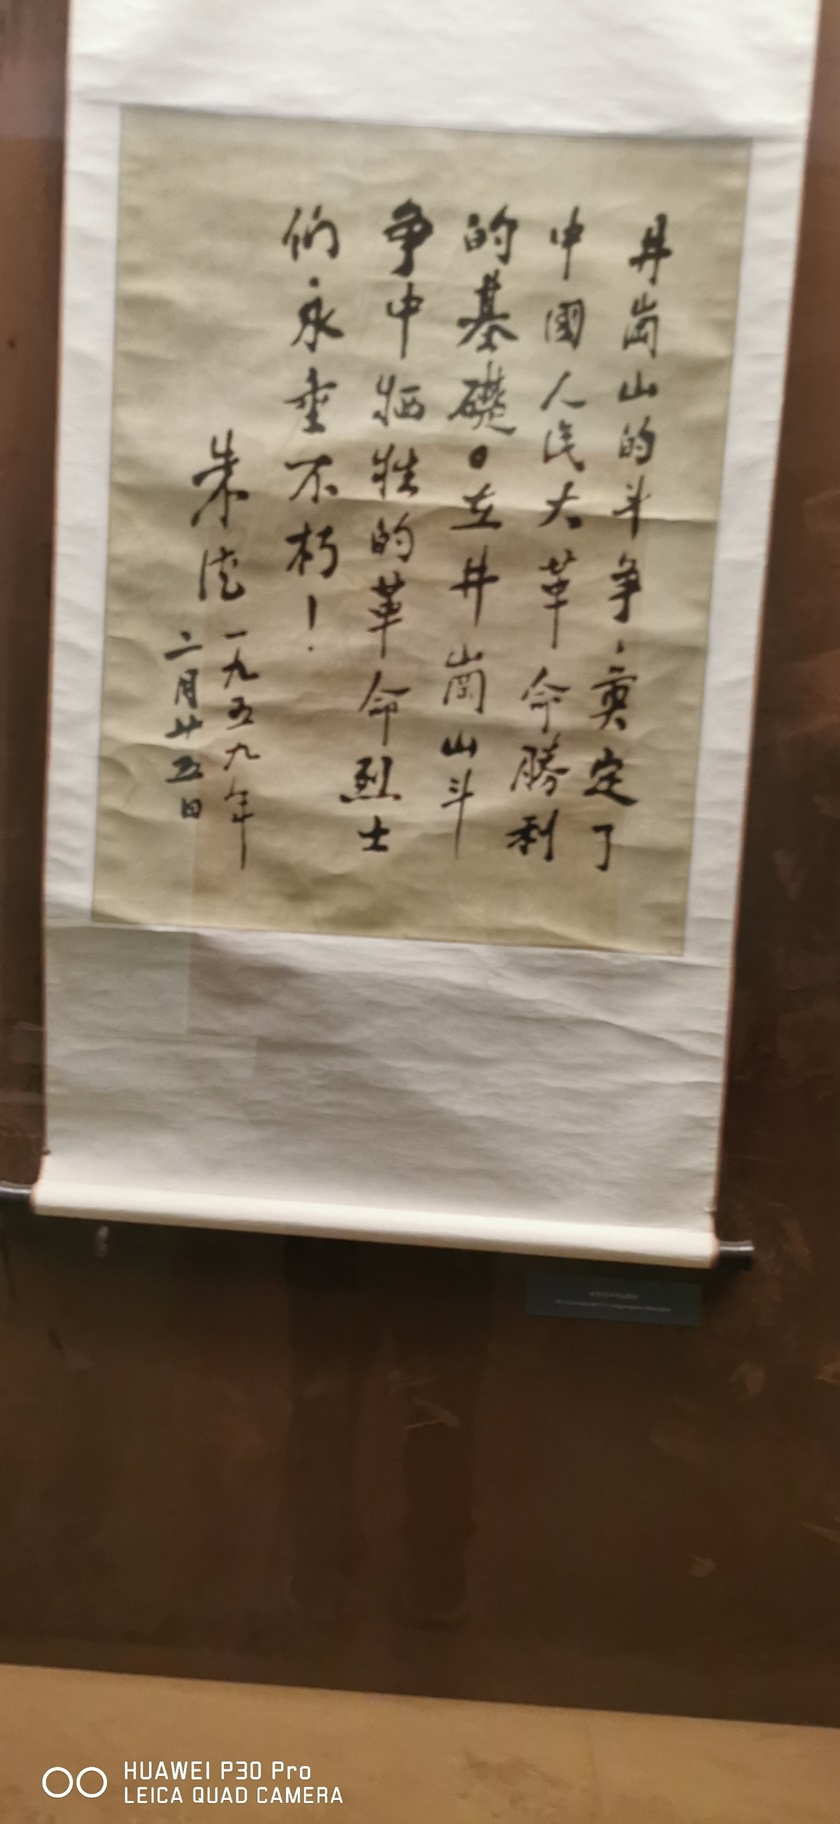 井崗山的斗争，奠定了
中國人民大革命勝利
的基礎。在井崗山斗
争中牺牲的革命烈士
们，永垂不朽！
朱德 一九五九年
二月廿五日
HUAWEI P30 Pro
LEICA QUAD CAMERA